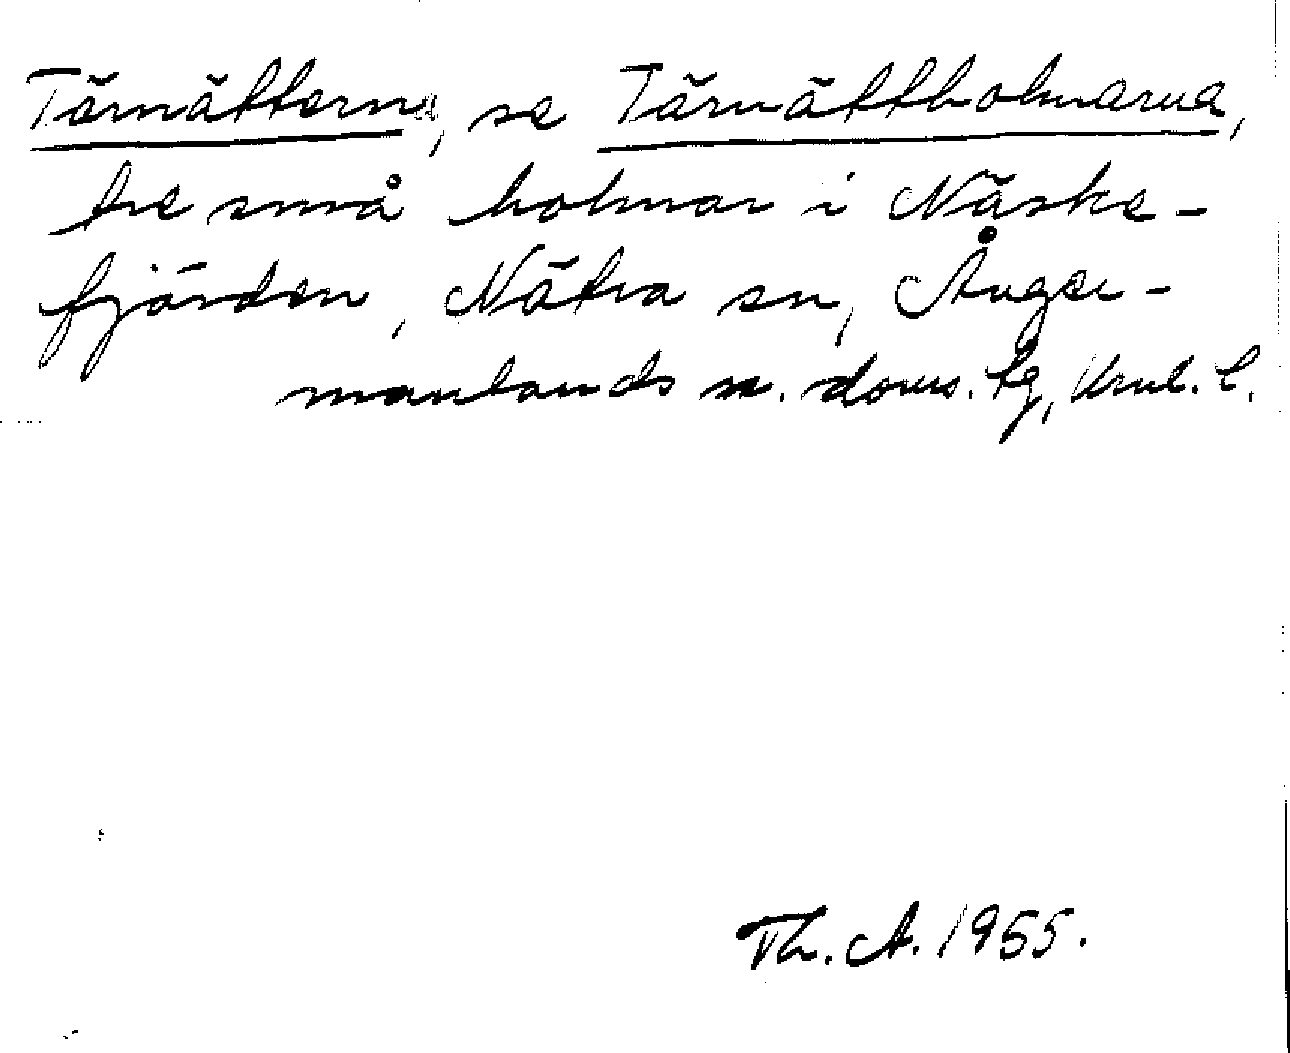 Tärnätterna, se Tärnättholmarna,
tre små holmar i Näske-
fjärden, Nätra sn, Ånger-
manlands n. doms. tg, Vrnl. l.
Th. A. 1955.